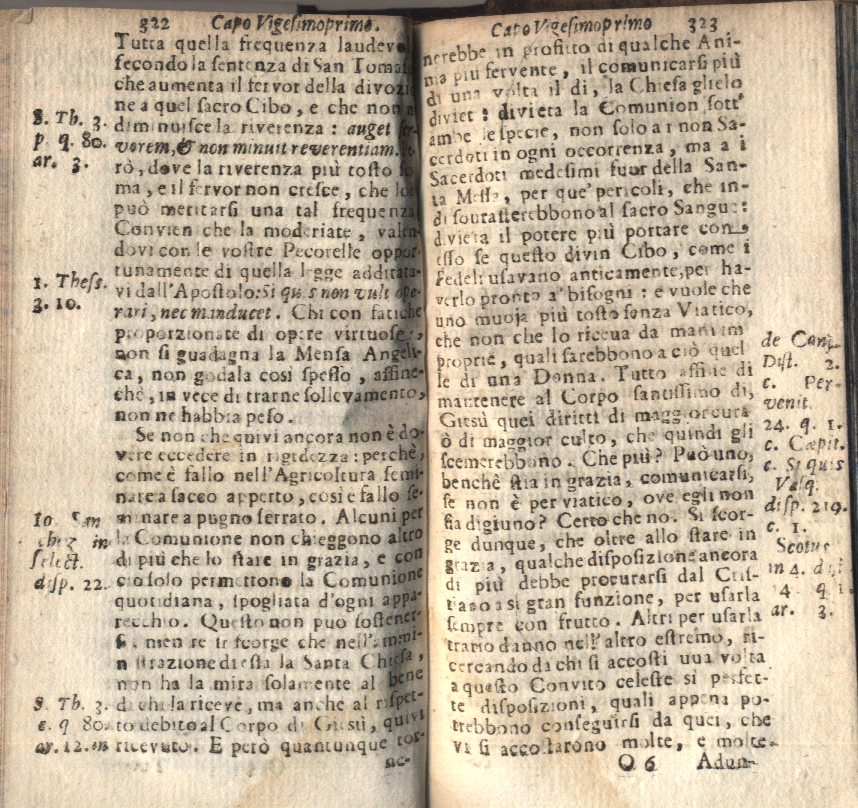 322 Capo Vigesimoprimo.
Tutta quella frequenza laudev
secondo la sentenza di San Tomas
che aumenta il fervor della divozi
ne a quel sacro Cibo, e che non
diminuisce la riverenza: auget fer-
vorem, & non minuit reverentiam.
rò, dove la riverenza più tosto
ma, e il fervor non cresce, che
può meritarsi una tal frequenza
Convien che la moderiate, valen
dovi con le vostre Pecorelle oppor
tunamente di quella legge additata-
vi dall'Apostolo: Si quis non vult ope-
rari, nec manducet. Chi con fatiche
proporzionate di opere virtuose,
non si guadagna la Mensa Angeli-
ca, non godala così spesso, affine-
chè, in vece di trarne sollevamento,
non ne habbia peso.
Se non che quivi ancora non è do-
vere eccedere in rigidezza: perchè,
come è fallo nell'Agricoltura semi-
nare a sacco apperto, così e fallo se-
minare a pugno serrato. Alcuni per
la Comunione non chieggono altro
di più che lo stare in grazia, e con
ciò solo permettono la Comunione
quotidiana, spogliata d'ogni appa-
recchio. Questo non può sostener-
si, mentre si scorge che nell'ammi-
nistrazione di essa la Santa Chiesa,
non ha la mira solamente al bene
di chi la riceve, ma anche al rispet-
to debito al Corpo di Giesù, quivi
ricevuto. E però quantunque tor-
ne-
S. Th. 3.
p. q. 80.
ar. 3.
1. Thess.
3. 10.
Io. San
chez in
select.
disp. 22.
S. Th. 3.
q 80.
ar. 12. in
Capo Vigesimoprimo 323
nerebbe in profitto di qualche Ani-
ma più fervente, il comunicarsi più
di una volta il dì, la Chiesa glielo
divieta: divieta la Comunion sott'
ambe le specie, non solo a i non Sa-
cerdoti in ogni occorrenza, ma a i
Sacerdoti medesimi fuor della San-
ta Messa, per que' pericoli, che in-
di sourasterebbono al sacro Sangue:
divieta il potere più portare con
esso se questo divin Cibo, come i
Fedeli usavano anticamente, per ha-
verlo pronto a' bisogni: e vuole che
uno muoja più tosto senza Viatico,
che non che lo riceva da mani im
proprie, quali sarebbono a ciò quel
le di una Donna. Tutto affine di
mantenere al Corpo santissimo di
Giesù quei diritti di maggior cura
ò di maggior culto, che quindi gli
scemerebbono. Che più? Può uno,
benchè stia in grazia, comunicarsi,
se non è per viatico, ove egli non
sia digiuno? Certo che no. Si scor-
ge dunque, che oltre allo stare in
grazia, qualche disposizione ancora
di più debbe procurarsi dal Cris-
tiano a si gran funzione, per usarla
sempre con frutto. Altri per usarla
trario danno nell'altro estremo, ri-
cercando da chi si accosti una volta
a questo Convito celeste si perfet-
te disposizioni, quali appena po-
trebbono conseguirsi da quei, che
vi si accostarono molte, e molte.
O 6 Adun-
de Con
Dist. 2.
c. Per-
venit.
24. q. 1.
c. Cœpit.
c. Si quis
Vasq.
disp. 219.
c. 1.
Scotus
in 4. dist
4 q 1.
ar. 3.